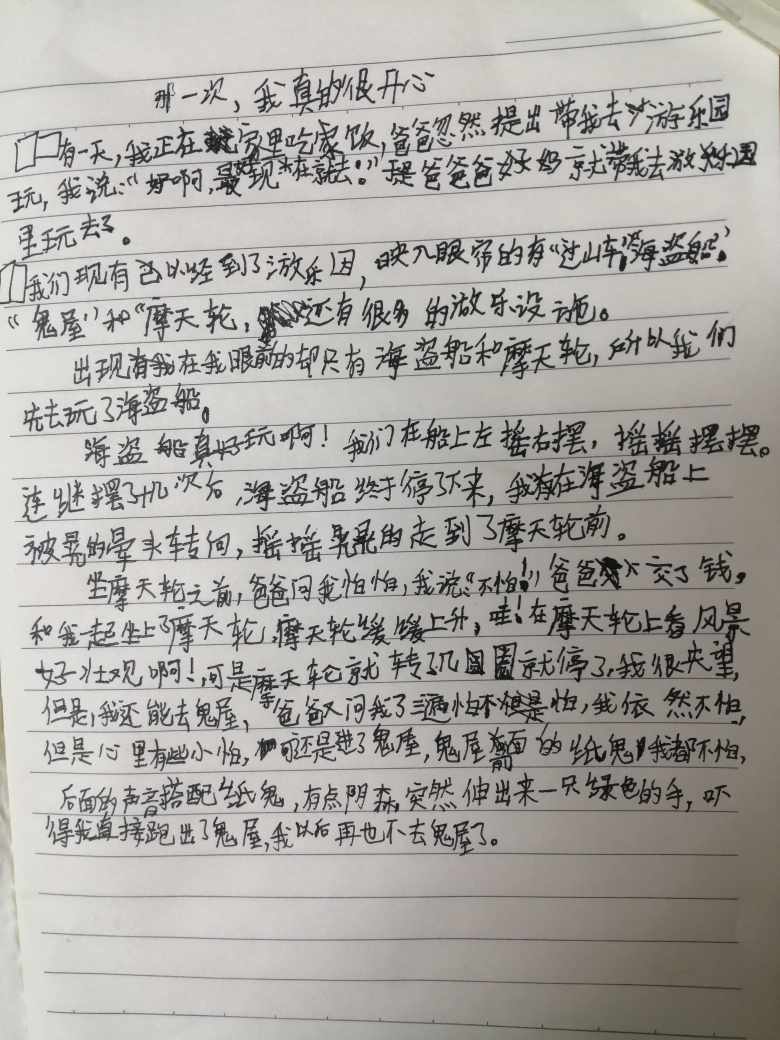 那一次，我真的很开心
有一天，我正在家里吃家饭，爸爸忽然提出带我去游乐园
玩，我说：“好啊，最好现在就去！”于是爸爸好奇就带我去放乐园
里玩去了。
我们现有已以经到了游乐因，映入眼帘的有“过山车”“海盗船”
“鬼屋”和“摩天轮，还有很多的游乐设施。
出现有我在我眼前的却只有海盗船和摩天轮，所以我们
先去玩了海盗船。
海盗船真好玩啊！我们在船上左摇右摆，摇摇摆摆。
连继摆了十几次后，海盗船终于停了下来，我有在海盗船上
被晃的晕头转向，摇摇晃晃的走到了摩天轮前。
坐摩天轮之前，爸爸问我怕怕，我说：“不怕！”爸爸交了钱，
和我一起坐上了摩天轮，摩天轮缓缓上升，哇！在摩天轮上看风景
好壮观啊！可是摩天轮就转了几圈就停了，我很失望，
但是，我还能去鬼屋，爸爸又问我了三遍怕不但是怕，我依然不怕，
但是心里有些小怕，可还是进了鬼屋，鬼屋前面的纸鬼我都不怕，
后面的声音搭配纸鬼，有点阴森，突然伸出来一只绿色的手，吓
得我直接跑出了鬼屋，我以后再也不去鬼屋了。